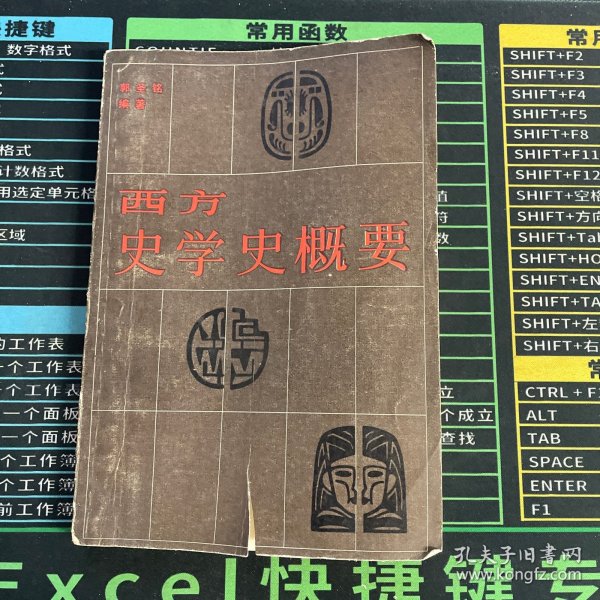 捷键
数字格式
式
式
格式
计数格式
用选定单元格
区域
的工作表
一个工作表
个工作表
一个面板
一个面板
个工作簿
个工作簿
前工作簿
常用函数
郭圣铭
编著
西方
史学史概要
值
符
数
位
个成立
查找
常用
SHIFT+F2
SHIFT+F3
SHIFT+F4
SHIFT+F5
SHIFT+F8
SHIFT+F11
SHIFT+F12
SHIFT+空格
SHIFT+方向
SHIFT+Tab
SHIFT+HO
SHIFT+EN
SHIFT+TA
SHIFT+左
SHIFT+右
常
CTRL+F
ALT
TAB
SPACE
ENTER
F1
Excel快捷键专
孔夫子旧书网
www.kongfz.com